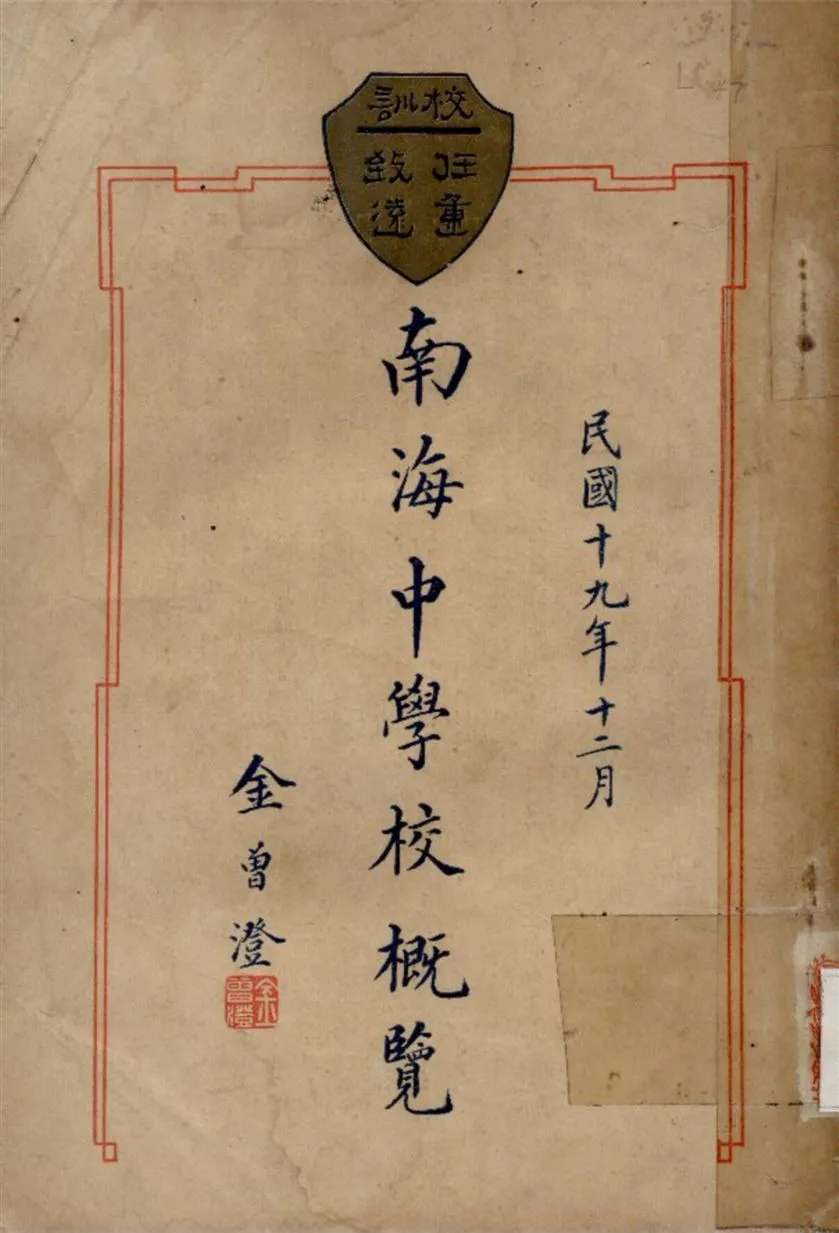 校訓
任重
致遠
民國十九年十二月
南海中學校概覽
金曾澄
金曾澄